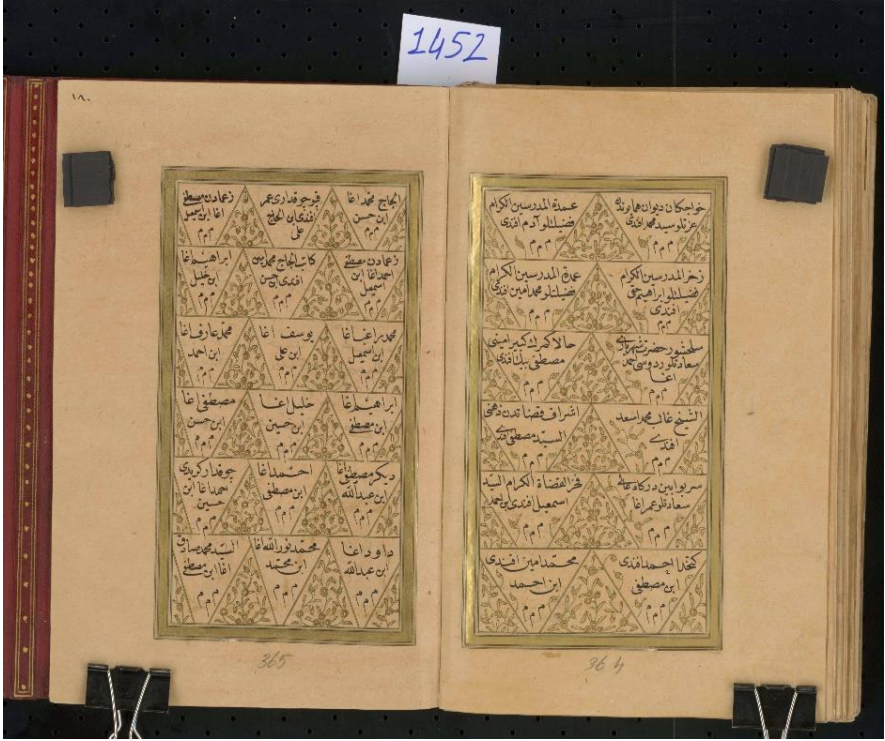 1452
١٨٠
خواجكان ديوان همايوندن
عزتلو سيد محمد افندى
م م م
عمدة المدرسين الكرام
فضيلتلو آدم افندى
م م م
ذخر المدرسين الكرام
فضيلتلو ابراهيم حقى
افندى
م م م
عمدة المدرسين الكرام
فضيلتلو محمد امين افندى
م م م
سلحشور حضرت شهريارى
سعادتلو
اغا
م م م
حالا كمرك كبير امينى
مصطفى بيك افندى
م م م
الشيخ غالب محمد اسعد
افندى
م م م
اشراف قضاتدن
السيد مصطفى افندى
م م م
سربوابين دركاه عالى
سعادتلو عمر اغا
م م م
فخر القضاة الكرام السيد
اسمعيل افندى بن احمد
م م م
كتخدا احمد افندى
ابن مصطفى
م م م
محمد امين افندى
ابن احمد
م م م
364
الحاج محمد اغا
ابن حسن
م م م
عمر
افندى ابن الحاج
على
زعمادن مصطفى
اغا ابن اسمعيل
م م م
زعمادن مصطفى
احمد اغا ابن
اسمعيل
م م م
كاتب الحاج محمد
افندى ابن حسن
م م م
ابراهيم اغا
ابن خليل
م م م
محمد اغا
ابن اسمعيل
م م م
يوسف اغا
ابن على
م م م
محمد عارف اغا
ابن احمد
م م م
ابراهيم اغا
ابن مصطفى
م م م
خليل اغا
ابن حسين
م م م
مصطفى اغا
ابن حسن
م م م
ديكر مصطفى اغا
ابن عبدالله
م م م
احمد اغا
ابن مصطفى
م م م
جوقدار كريدى
احمد اغا ابن
حسين
م م م
داود اغا
ابن عبدالله
م م م
محمد نورالله اغا
ابن محمد
م م م
السيد محمد صادق
اغا ابن مصطفى
م م م
365